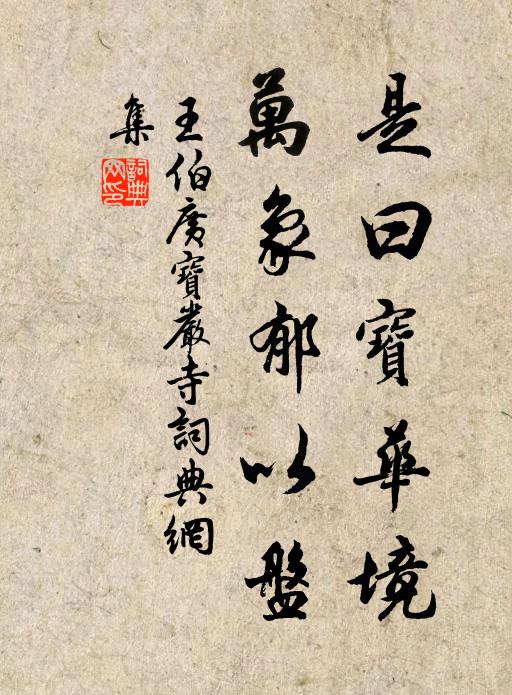 是曰寶華境
萬象郁以盤
王伯廣寶嚴寺詞典網
集
詞典網印